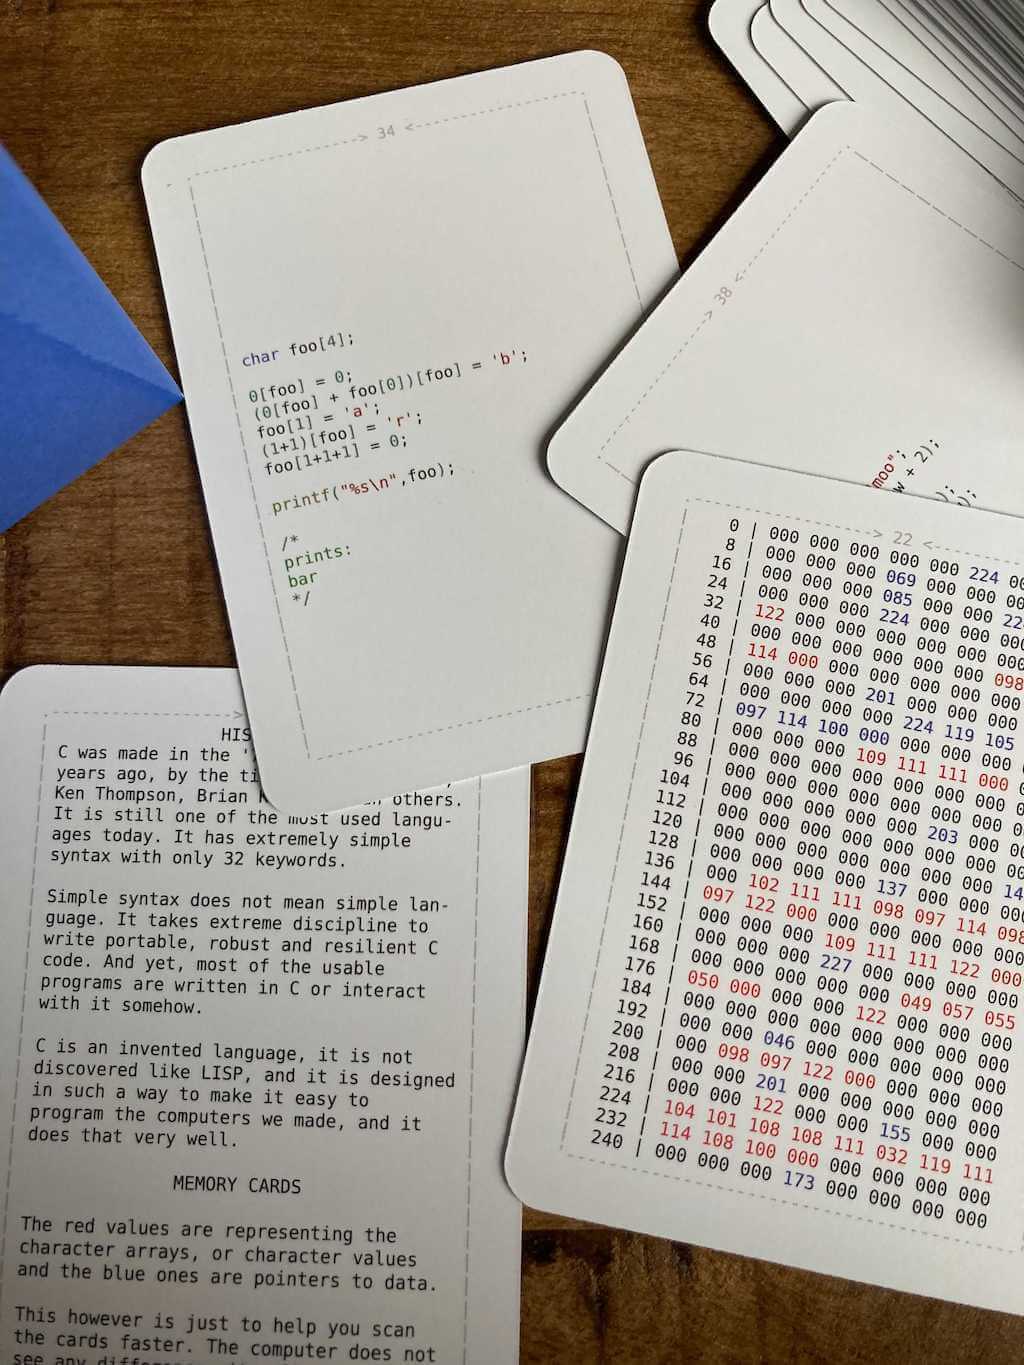 -> 34 <-
char foo[4];
0[foo] = 0;
(0[foo] + foo[0])[foo] = 'b';
foo[1] = 'a';
(1+1)[foo] = 'r';
foo[1+1+1] = 0;
printf("%s\n",foo);
/*
prints:
bar
*/
-> 38 <-
moo";
w + 2);
);
);
-> 22 <-
0 | 000 000 000 000 000 224
8 | 000 000 000 069 000 000
16 | 000 000 000 085 000 000
24 | 000 000 000 224 000 000
32 | 122 000 000 000 000 000
40 | 000 000 000 000 000 000 098
48 | 114 000 000 000 000 000 000
56 | 000 000 000 201 000 000 000
64 | 000 000 000 000 224 119 105
72 | 097 114 100 000 000 000 000
80 | 000 000 000 109 111 111 000
88 | 000 000 000 000 000 000 000
96 | 000 000 000 000 000 000 000
104 | 000 000 000 000 000 203 000
112 | 000 000 000 000 000 000 000
120 | 000 000 000 000 000 000 000
128 | 000 000 000 000 137 000 000
136 | 000 102 111 111 098 097 114 098
144 | 097 122 000 000 000 000 000 000
152 | 000 000 000 109 111 111 122 000
160 | 000 000 000 227 000 000 000 000
168 | 000 000 000 000 000 049 057 055
176 | 050 000 000 000 122 000 000 000
184 | 000 000 000 000 000 000 000 000
192 | 000 000 046 000 000 000 000 000
200 | 000 098 097 122 000 000 000 000
208 | 000 000 201 000 000 000 000 000
216 | 000 000 122 000 000 155 000 000
224 | 104 101 108 108 111 032 119 111
232 | 114 108 100 000 000 000 000 000
240 | 000 000 000 173 000 000 000 000
HIS
C was made in the '
years ago, by the ti
Ken Thompson, Brian others.
It is still one of the most used langu-
ages today. It has extremely simple
syntax with only 32 keywords.
Simple syntax does not mean simple lan-
guage. It takes extreme discipline to
write portable, robust and resilient C
code. And yet, most of the usable
programs are written in C or interact
with it somehow.
C is an invented language, it is not
discovered like LISP, and it is designed
in such a way to make it easy to
program the computers we made, and it
does that very well.
MEMORY CARDS
The red values are representing the
character arrays, or character values
and the blue ones are pointers to data.
This however is just to help you scan
the cards faster. The computer does not
see any